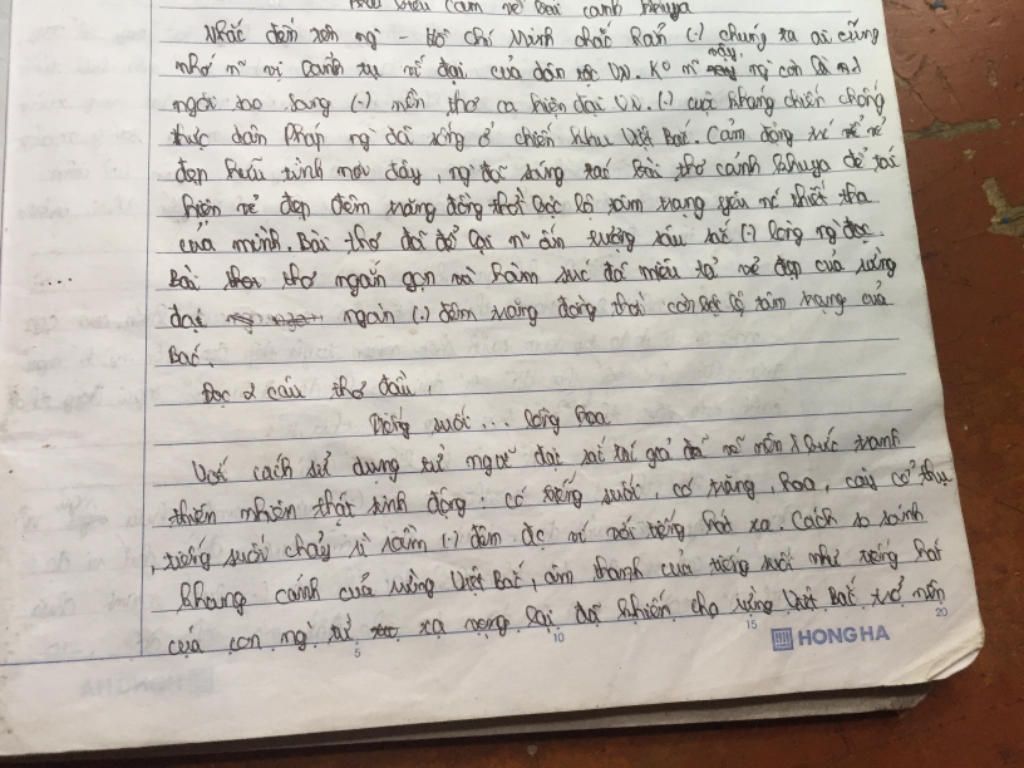 biểu cảm về bài cảnh khuya
Nhắc đến tên ng - Hồ Chí Minh chắc hẳn (-) chúng ta ai cũng
nhớ vị vĩ đại của dân tộc VN. K° ng còn là
ngôi sao sáng (-) nền thơ ca hiện đại VN. (-) cuộc kháng chiến chống
thực dân Pháp ng đã sống ở chiến khu Việt Bắc. Cảm động vẻ
đẹp hữu tình nơi đây, ng đã sáng tác bài thơ cảnh khuya để tái
hiện vẻ đẹp đêm trăng đồng thời bộc lộ tâm trạng yêu nc thiết tha
của mình. Bài thơ đã để lại ấn tượng sâu sắc (-) lòng ng đọc.
Bài thơ ngắn gọn mà hàm súc đã miêu tả vẻ đẹp của rừng
đại ngàn (-) đêm trăng đồng thời còn bộc lộ tâm trạng của
Bác.
Đọc 2 câu thơ đầu.
Tiếng suối... lồng hoa
Với cách sử dụng từ ngữ tác giả đã vẽ nên bức tranh
thiên nhiên thật sinh động: có tiếng suối, có trăng, hoa, cây cổ thụ
, tiếng suối chảy rì rầm (-) đêm đc ví với tiếng hát xa. Cách so sánh
khung cảnh của rừng Việt Bắc, âm thanh của tiếng suối như tiếng hát
của con ng từ xa vọng lại đã khiến cho rừng Việt Bắc trở nên
5 10 15 20
HONG HA